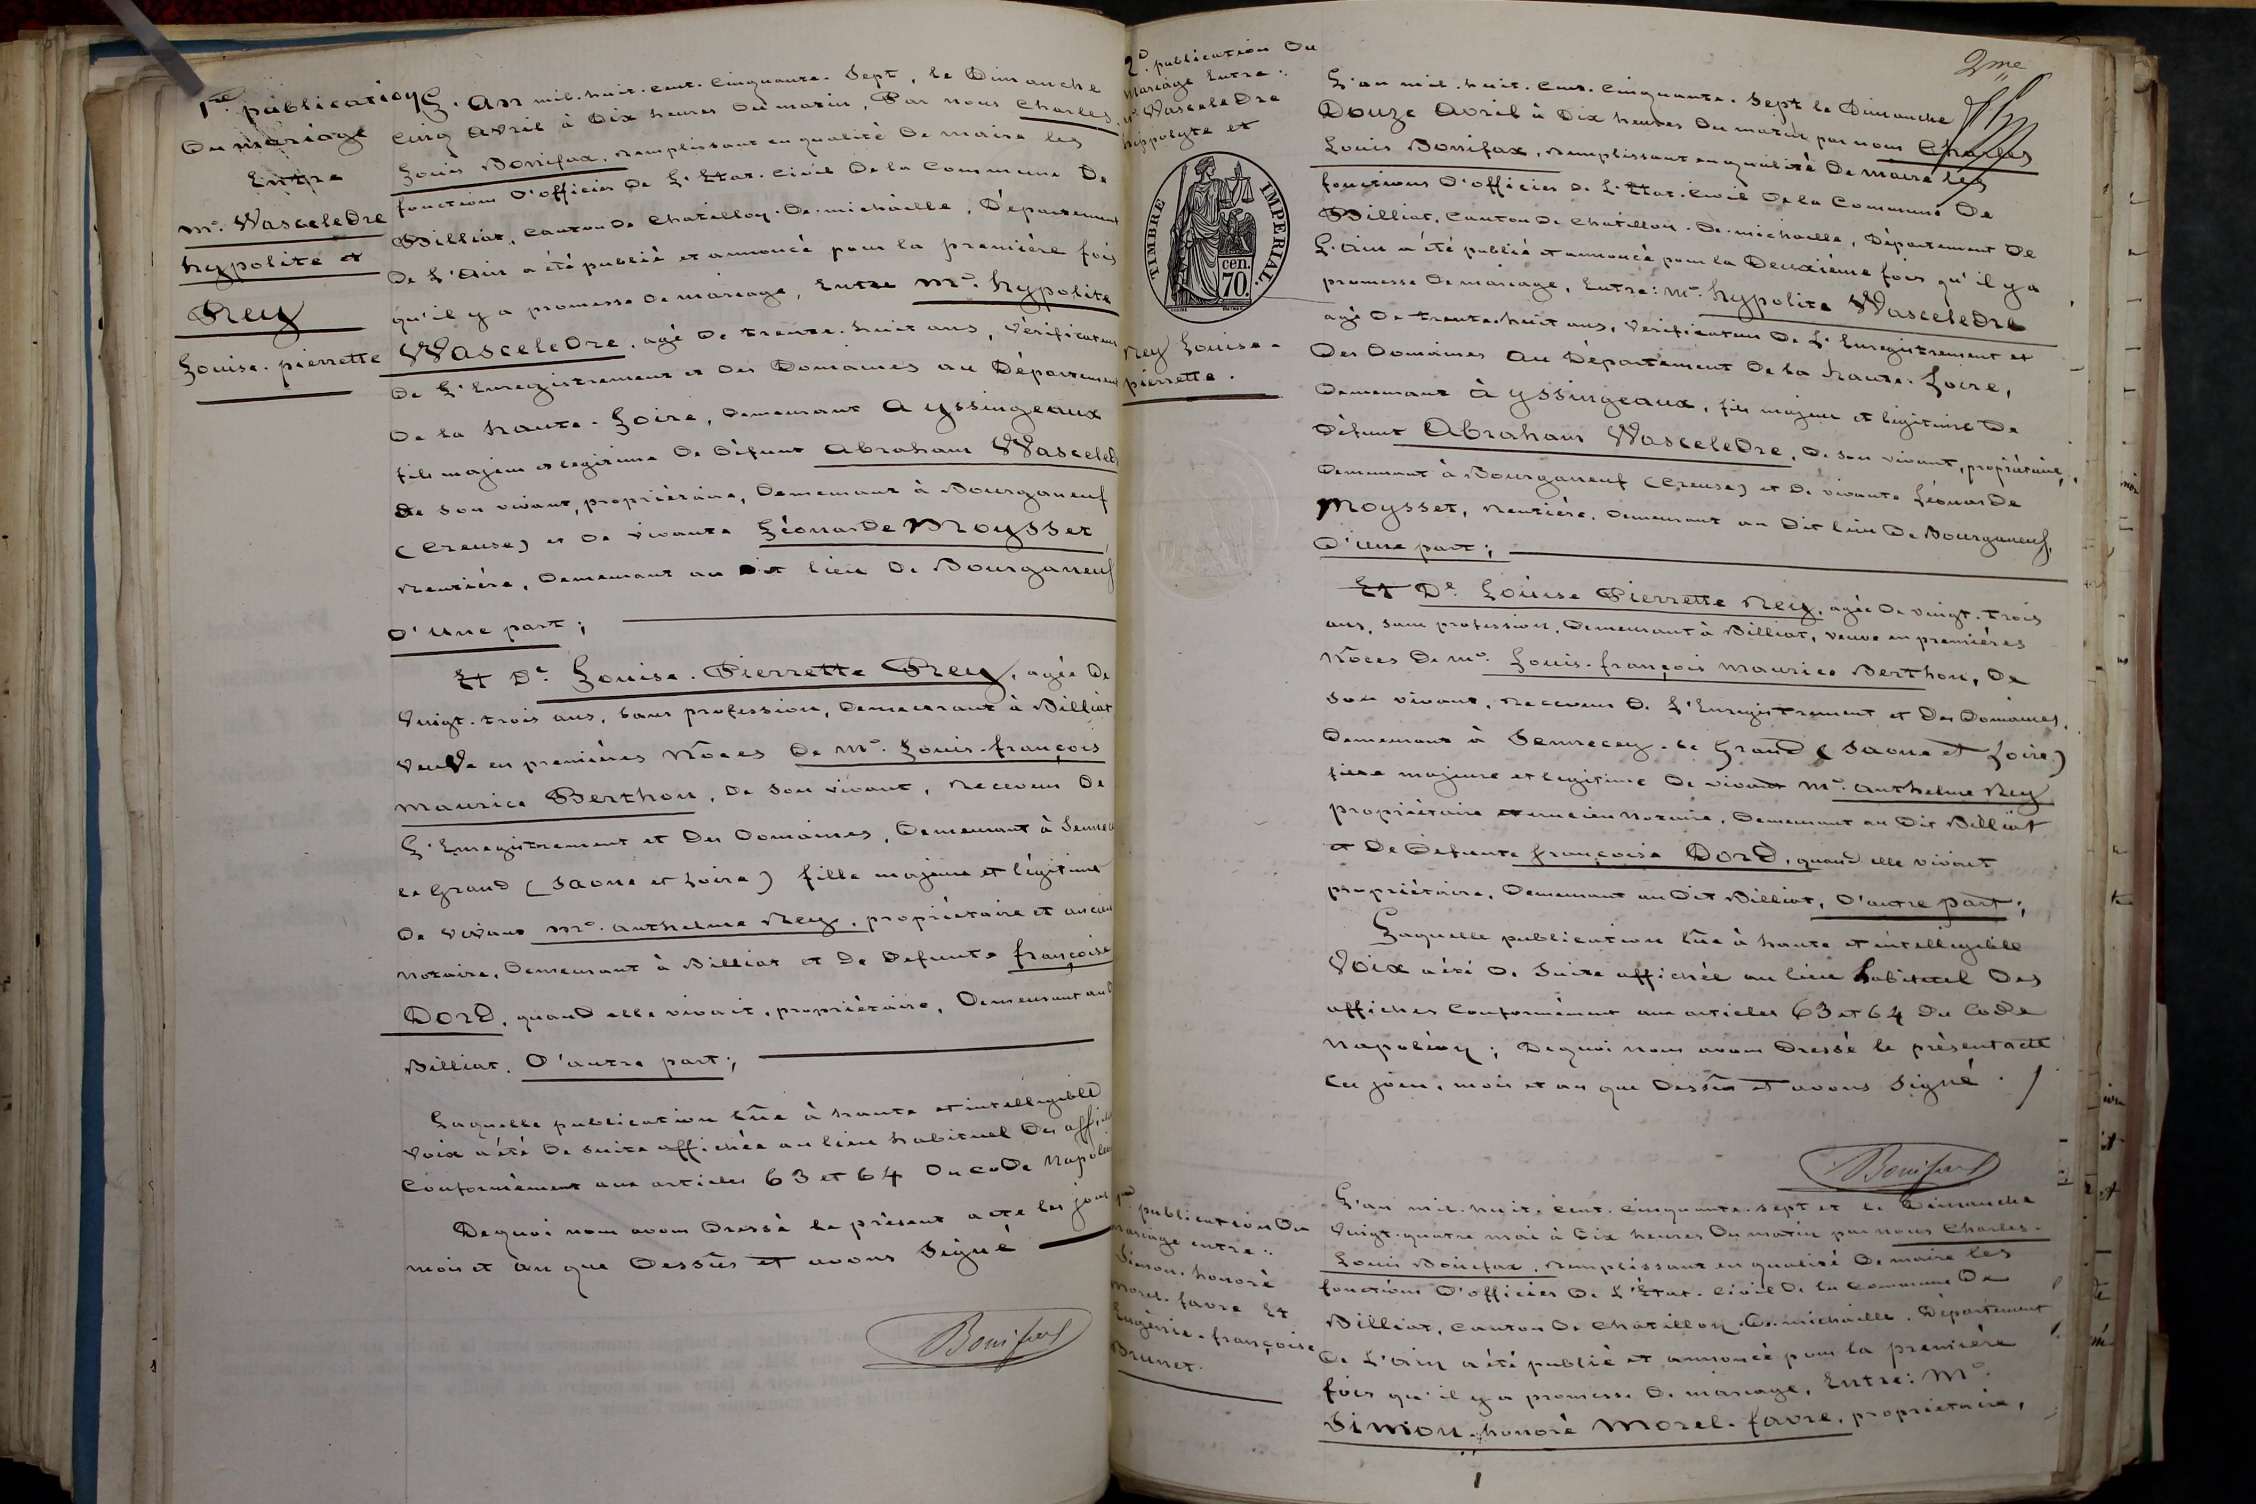 1re publication
Du mariage
Entre
mr. Wasceledre
hypolite et
Rey
Louise. pierrette
L'An mil. huit. cent. Cinquante. Sept, le Dimanche
Cinq Avril à Dix heures Du matin, Par nous Charles
Louis Bonifax, remplissant en qualité De maire les
fonctions D'officier De L'Etat. Civil De la Commune De
Billiat, Canton De Chatillon. De. michaille, Département
De L'Ain a été publié et annoncé pour la première fois
qu'il y a promesse De mariage, Entre mr. hypolite
Wasceledre, agé De trente. huit ans, Vérificateur
De L'Enregistrement et Des Domaines au Département
De la haute. Loire, Demeurant a yssingeaux
fils majeur et legitime De Défunt Abraham Wasceled
De Son vivant, propriétaire, Demeurant à Bourganeuf
(Creuse) et De vivante Léonarde Moysset
Rentière, Demeurant au Dit lieu De Bourganeuf
D'Une part;
Et De. Louise. Pierrette Rey, agée De
Vingt. trois ans, Sans profession, Demeurant à Billiat
Veuve en premières Nôces De Mr. Louis. françois
maurice Berthon, De Son vivant, Receveur De
L'Enregistrement et Des Domaines, Demeurant à Senne
le Grand (Saone et Loire) fille majeure et légitime
De vivant Mr. anthelme Rey, propriétaire et ancien
Notaire, Demeurant à Billiat et De Defunte françoise
Dord, quand elle vivait, propriétaire, Demeurant au D
Billiat. D'autre part;
Laquelle publication lûe à haute et intelligible
Voix a été De suite affichée au lieu habituel Des affich
Conformément aux articles 63 et 64 Du Code Napoléon
Dequoi nous avons Dressé le présent acte les jour
mois et an que Dessûs et avons Signé
Bonifax
2e. publication Du
Mariage Entre:
mr. Wasceledre
hyppolyte et
TIMBRE IMPERIAL.
cen.
70.
Rey Louise.
pierrette.
2me
L'an mil. huit. Cent. Cinquante. Sept le Dimanche
Douze Avril à Dix heures Du matin par nous Charles
Louis Bonifax, remplissant en qualité De maire les
fonctions D'officier De L'Etat. Civil De la Commune De
Billiat, Canton De Chatillon. De. michaille, Département De
L'Ain a été publié et annoncé pour la Deuxième fois qu'il y a
promesse De mariage, Entre: mr. hypolite Wasceledre
agé De trente huit ans, Vérificateur De L'Enregistrement et
Des Domaines Au Département De la haute. Loire,
Demeurant à yssingeaux, fils majeur et legitime De
Défunt Abraham Wasceledre, De son vivant, propriétaire,
Demeurant à Bourganeuf (Creuse) et De vivante Léonarde
Moysset, Rentière, Demeurant au Dit lieu De Bourganeuf,
D'Une part;
Et De. Louise Pierrette Rey, agée De vingt. trois
ans, Sans profession, Demeurant à Billiat, veuve en premières
Nôces De mr. Louis. françois maurice Berthon, De
Son vivant, Receveur De L'Enregistrement et Des Domaines,
Demeurant à Sennecey. le Grand (Saone et Loire)
fille majeure et legitime De vivant Mr. anthelme Rey
propriétaire et ancien Notaire, Demeurant au Dit Billiat
et De Défunte françoise Dord, quand elle vivait
propriétaire, Demeurant au Dit Billiat, D'autre part;
Laquelle publication lûe à haute et intelligible
Voix a été De Suite affichée au lieu habituel Des
affiches Conformément aux articles 63 et 64 Du Code
Napoléon; Dequoi nous avons Dressé le présent acte
les jour, mois et an que Dessûs et avons Signé.
Bonifax
1re. publication Du
mariage entre:
Simon. honoré
Morel. favre Et
Eugénie. françoise
Brunet.
L'an mil. huit. Cent. Cinquante. Sept et le Dimanche
Vingt. quatre mai à Dix heures Du matin par nous Charles.
Louis Bonifax, Remplissant en qualité De maire les
fonctions D'officier De L'Etat. Civil De la Commune De
Billiat, Canton De Chatillon. De. michaille, Département
De L'Ain a été publié et annoncé pour la première
fois qu'il y a promesse De mariage, Entre: Mr.
Simon. honoré Morel. favre, propriétaire,